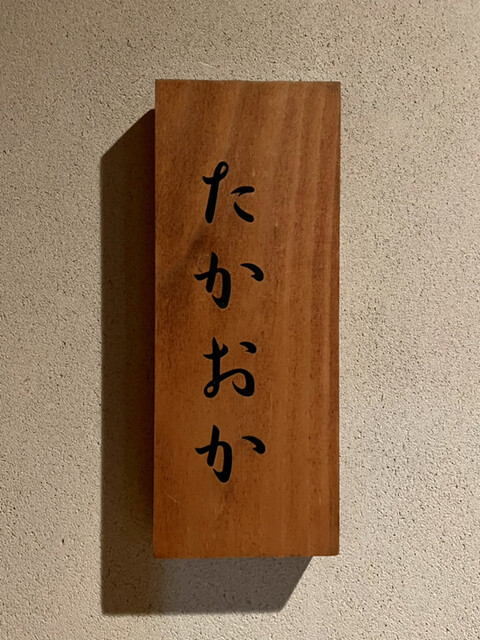 たかおか